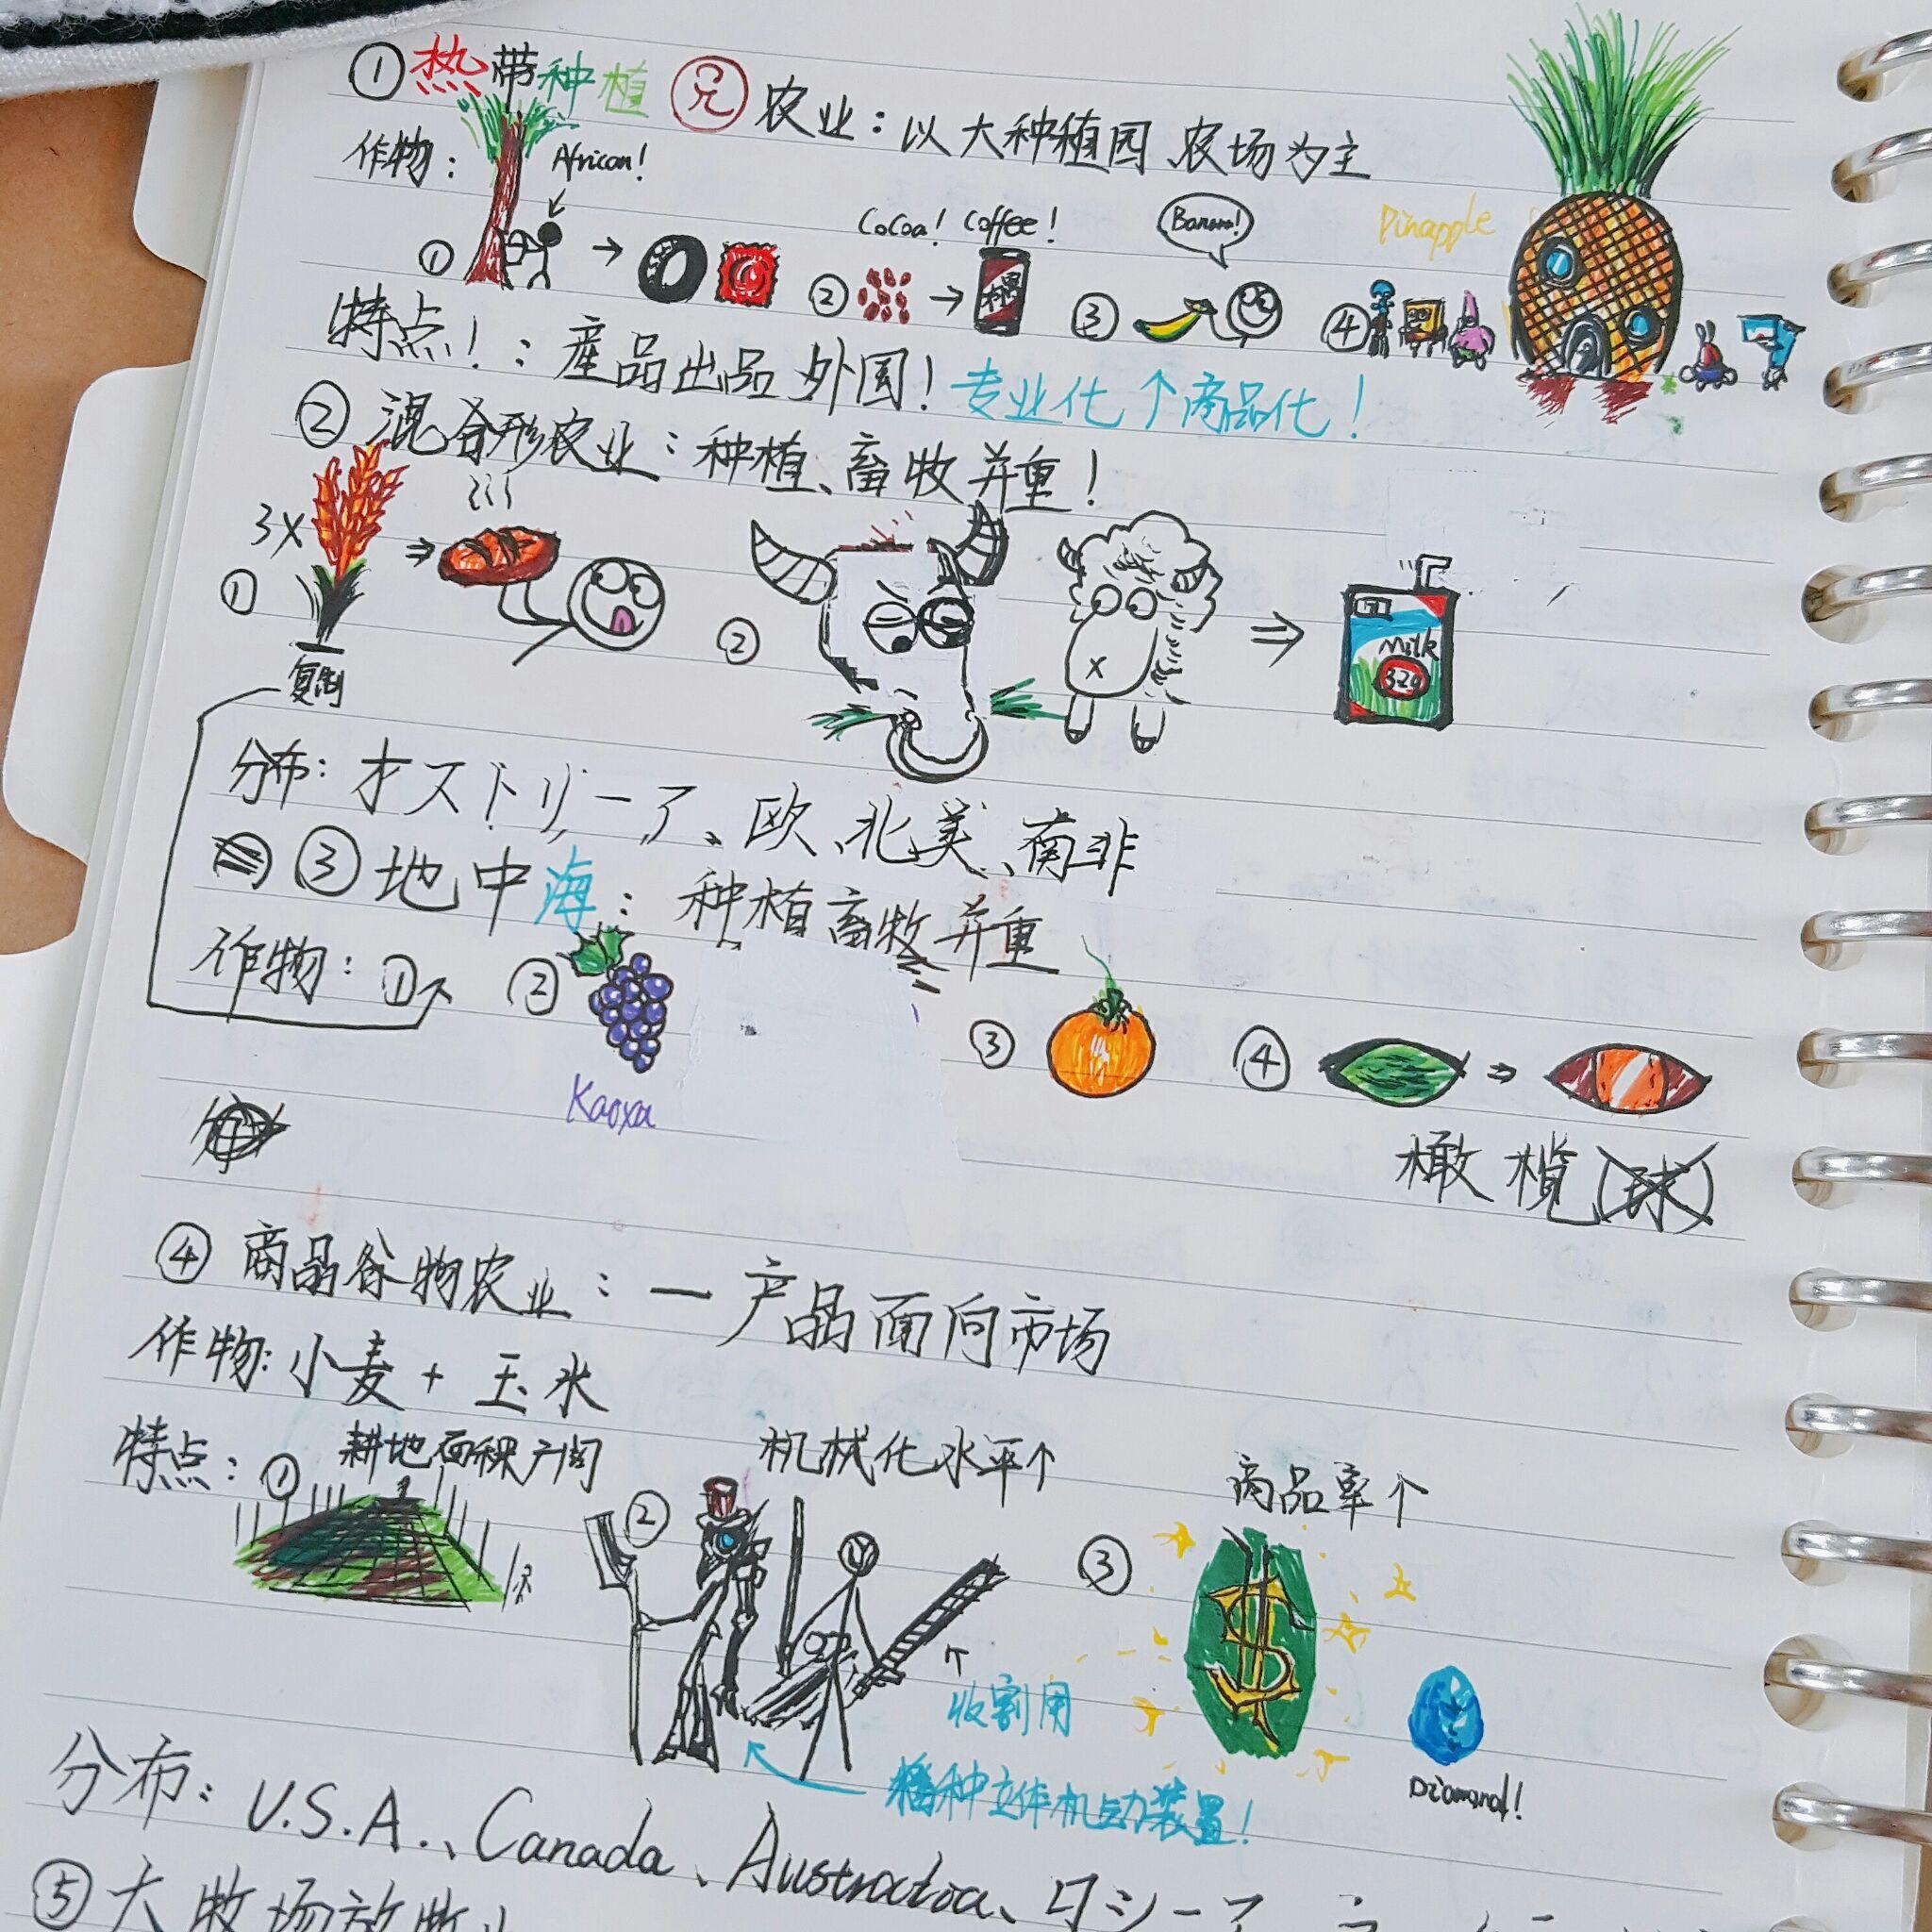 ① 热带种植 ㊁ 农业：以大种植园、农场为主
作物： African!
① ② Cocoa! Coffee! ③ Banana! ④ Pinapple
特点！：産品出品外国！专业化个商品化！
② 混合形农业：种植、畜牧并重！
3X
① ② Milk
复制
分布：オストリーア、欧、北美、南非
③ 地中海：种植畜牧并重
作物：① ② ③ ④
Kaoxa
橄榄球
④ 商品谷物农业：一产品面向市场
作物：小麦 + 玉米
特点：① 耕地面积广阔 ② 机械化水平个 ③ 商品率个
收割用
播种立体机动装置！
Diamond!
分布：U.S.A.、Canada、Australia、ロシーア
⑤ 大牧场放牧业